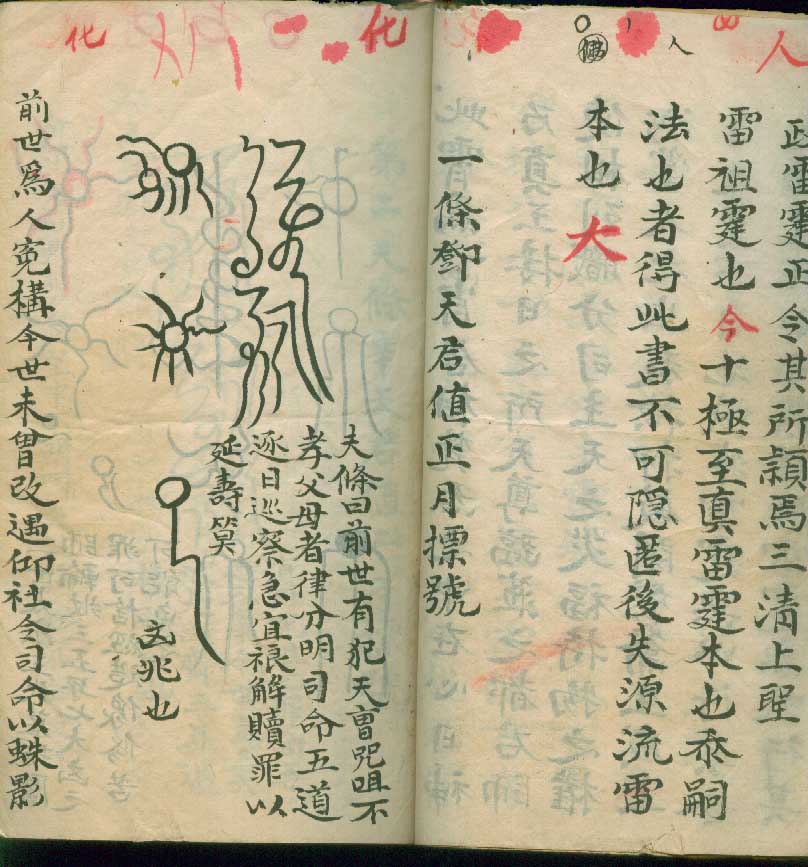 人
政雷霆正令其所穎焉三清上聖
雷祖霆也今十極至真雷霆本也忝嗣
法也者得此書不可隱匿後失源流雷
本也大
一條鄧天君值正月摽號
化
夫條曰前世有犯天曹咒咀不
孝父母者律分明司命五道
逐日巡察急宜禳解贖罪以
延壽筭
兆也
化
前世爲人冤構今世未曾改遇仰社令司命以蛛影